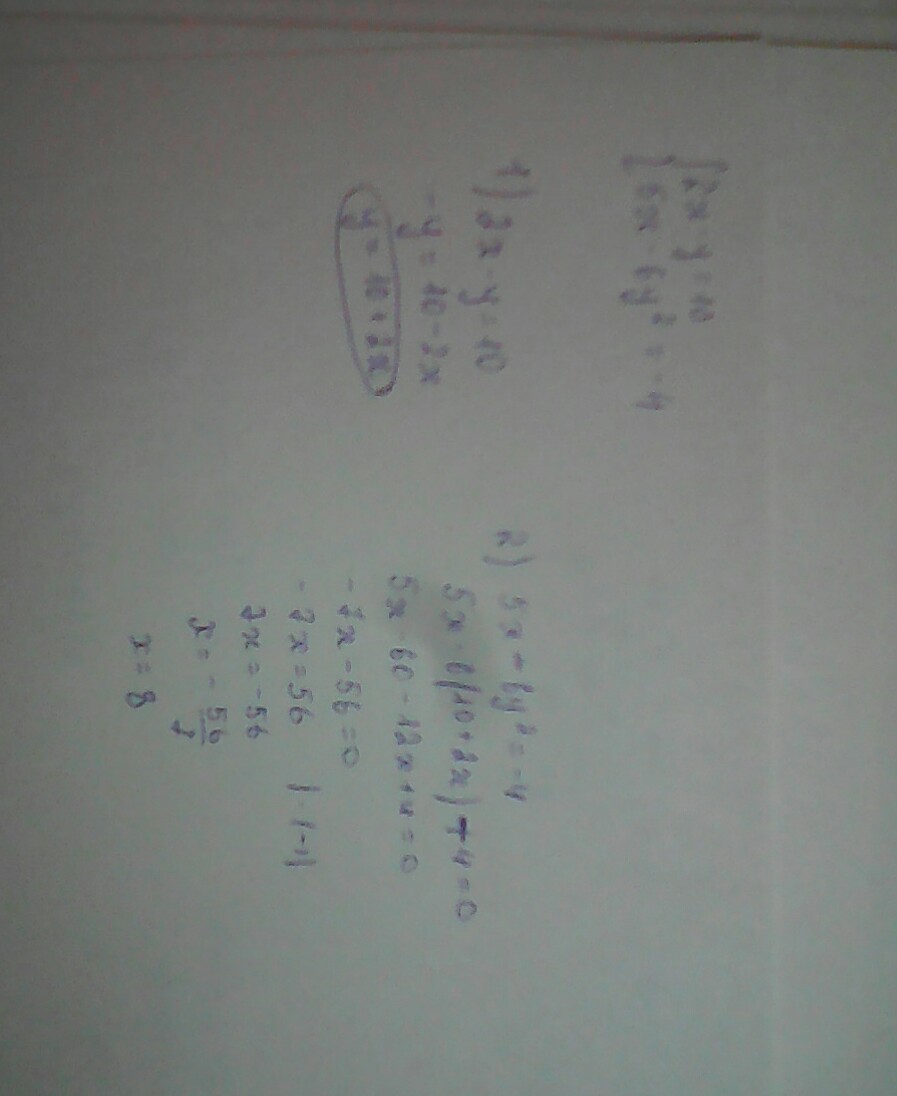 2x - y = 10
5x - 6y² = -4
1) 2x - y = 10
-y = 10 - 2x
y = 10 + 2x
2) 5x - 6y² = -4
5x - 6(10 + 2x) + 4 = 0
5x - 60 - 12x + 4 = 0
-7x - 56 = 0
-7x = 56 | · (-1)
7x = -56
x = - 56/7
x = 8